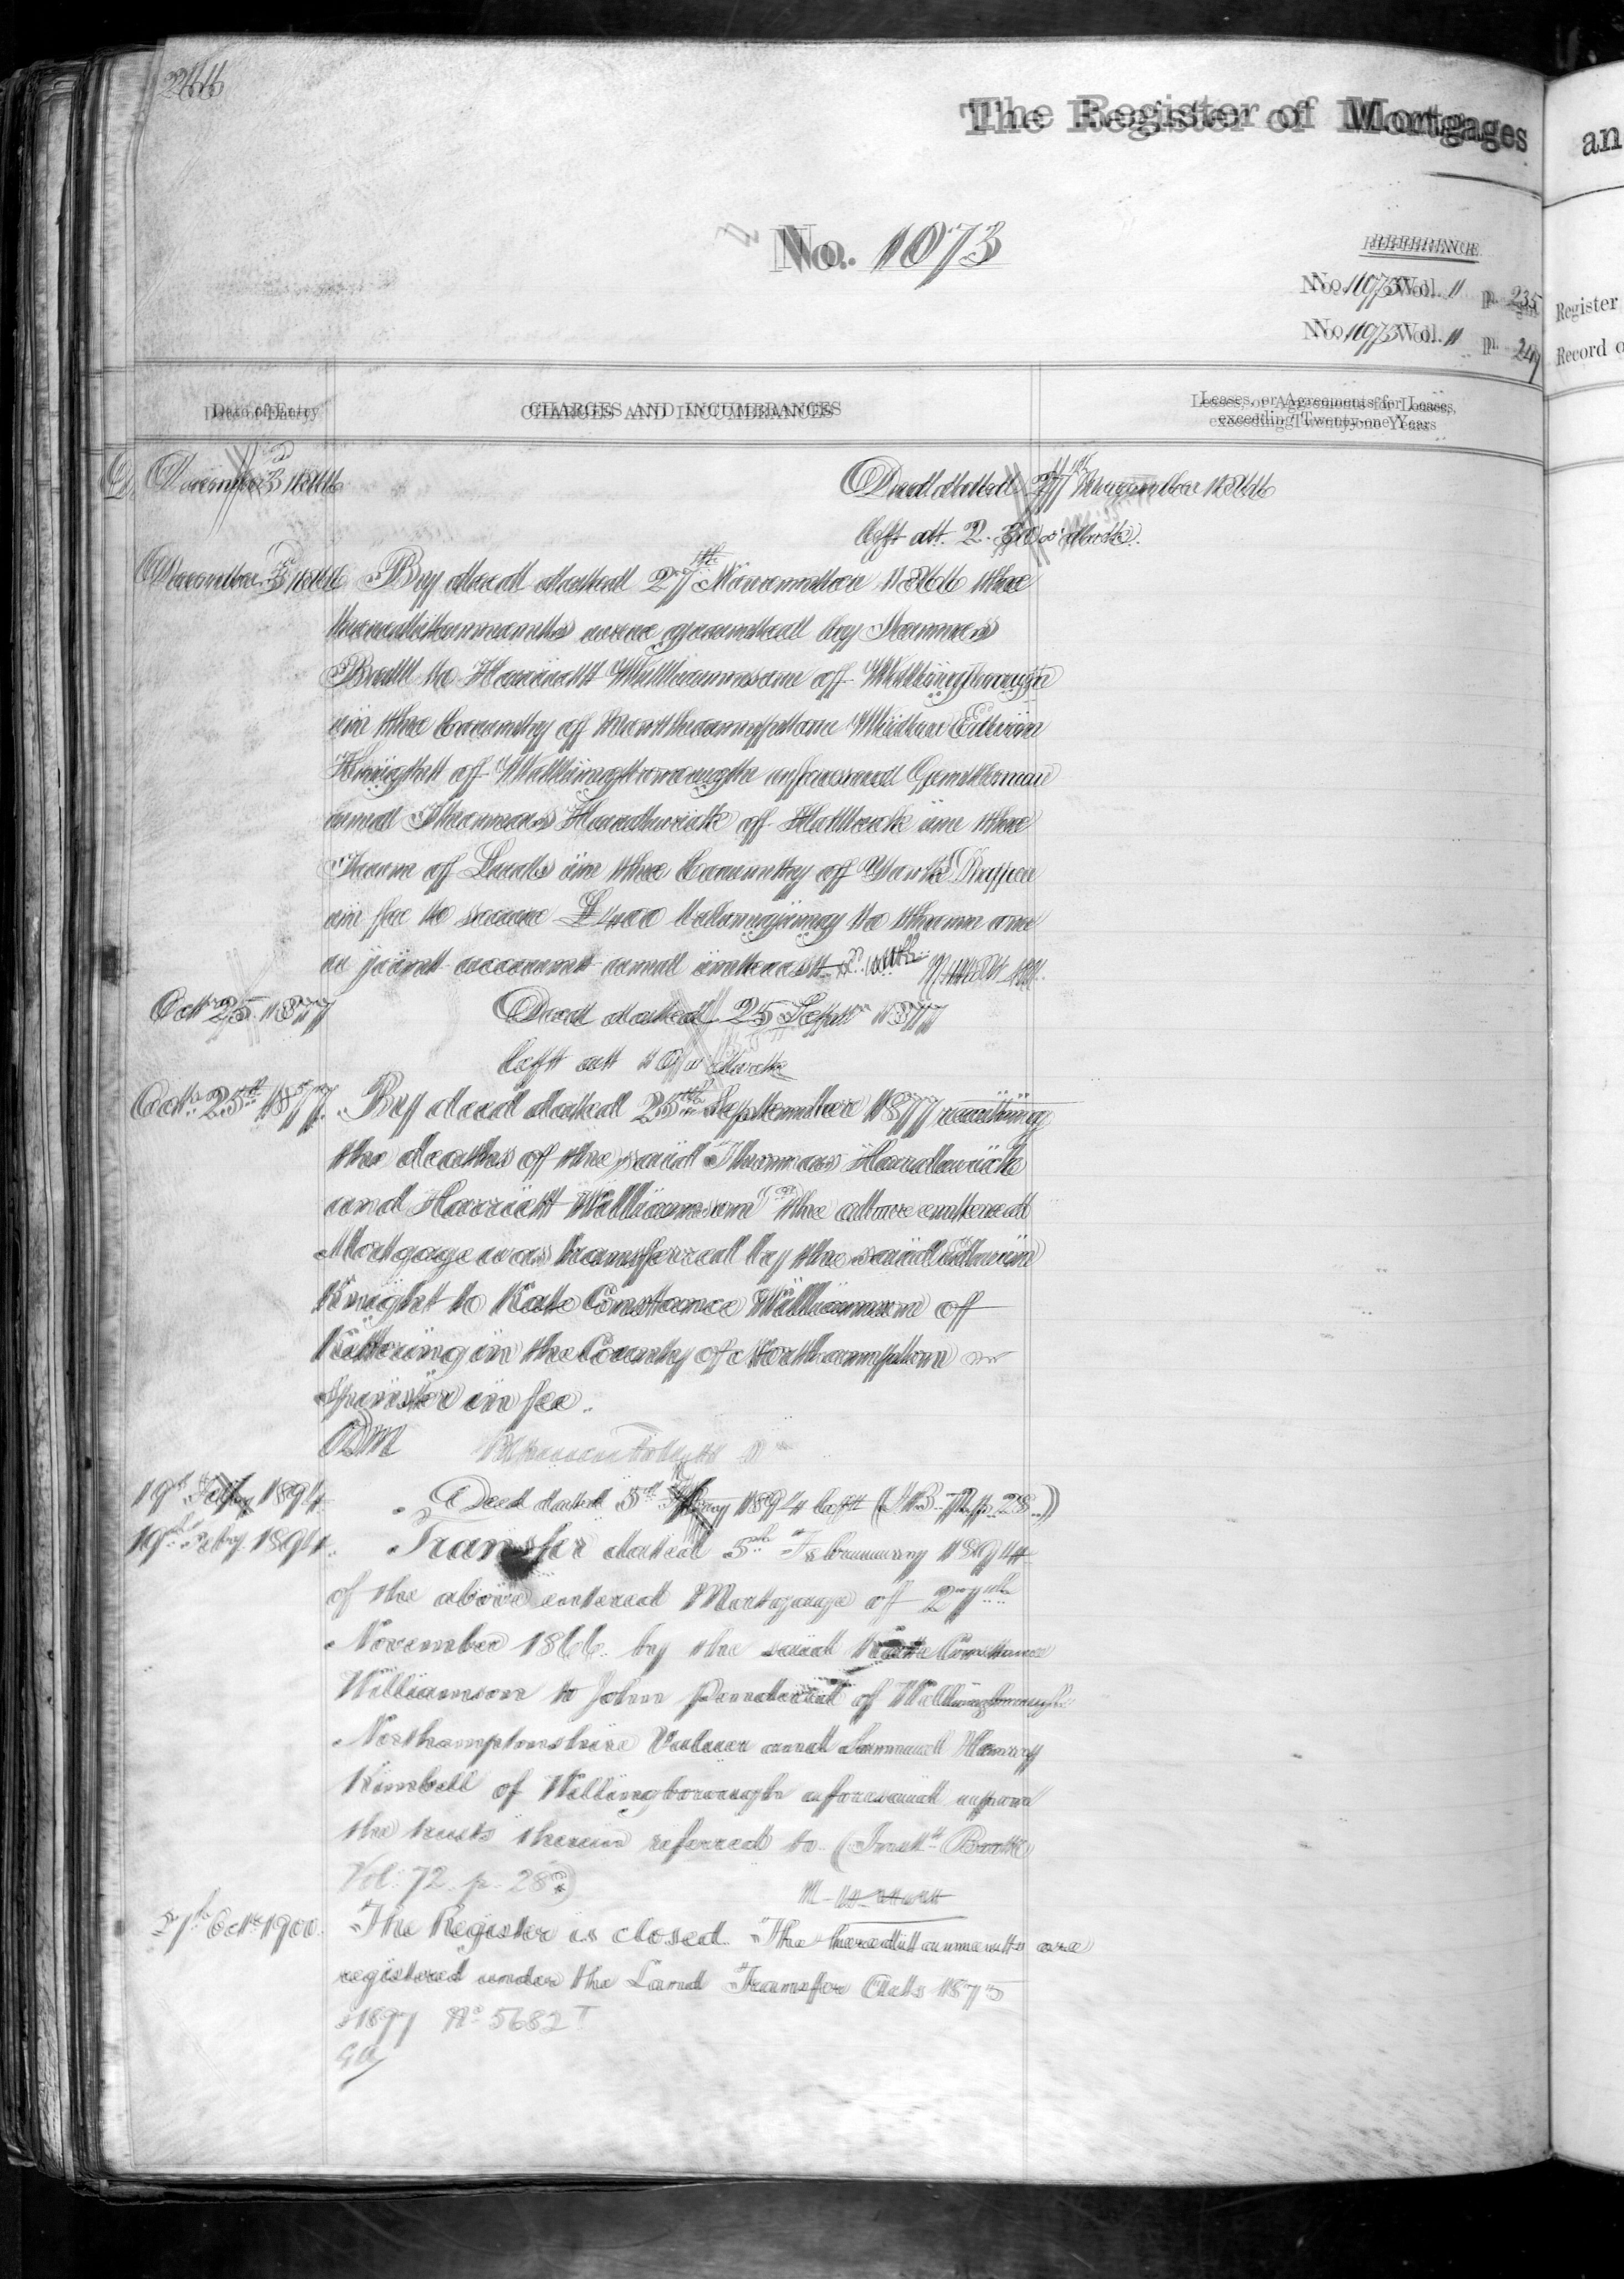 266
The Register of Mortgages
an
No. 1073
REFERENCE
No. 1073 Vol. 11 p. 235
Register
No. 1073 Vol. 11 p. 249
Record o
Date of Entry
CHARGES AND INCUMBRANCES
Leases, or Agreements for Leases,
exceeding Twenty-one Years
December 3 1866
Deed dated 27th November 1866
left at 2.30 o'clock.
December 3 1866 By deed dated 27th November 1866 the
hereditaments were granted by James
Bull to Harriett Williamson of Wellingborough
in the County of Northampton Widow Edwin
Knight of Wellingborough aforesaid Gentleman
and Thomas Hardwick of Holbeck in the
Town of Leeds in the County of York
in fee to secure £400 belonging to them on
a joint account and interest
Oct 25 1877 Deed dated 25 Septr 1877
left at o'clock
Octr 25th 1877. By deed dated 25th September 1877 reciting
the deaths of the said Thomas Hardwick
and Harriett Williamson the above entered
Mortgage was transferred by the said Edwin
Knight to Kate Constance Williamson of
Kettering in the County of Northampton
Spinster in fee.
19th Feby 1894 Deed dated 5th Feby 1894 left (I.B. 72. p. 28.)
19th Feby 1894. Transfer dated 5th February 1894
of the above entered Mortgage of 27th
November 1866. by the said Kate Constance
Williamson to John Pendered of Wellingborough
Northamptonshire Valuer and Samuel Henry
Kimbell of Wellingborough aforesaid upon
the trusts therein referred to. (Inst. Book
Vol. 72. p. 28)
27th Octr 1900. The Register is closed. The hereditaments are
registered under the Land Transfer Acts 1875
& 1897 No 5682 T